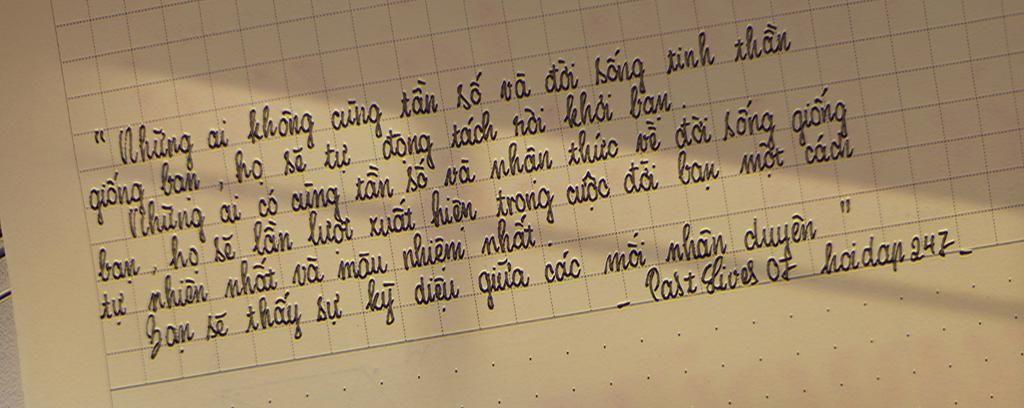 “Những ai không cùng tần số và đời sống tinh thần
giống bạn, họ sẽ tự động tách rời khỏi bạn.
Những ai có cùng tần số và nhận thức về đời sống giống
bạn, họ sẽ lần lượt xuất hiện trong cuộc đời bạn một cách
tự nhiên nhất và mầu nhiệm nhất.
Bạn sẽ thấy sự kỳ diệu giữa các mối nhân duyên”
- Past lives Of hoidap247-